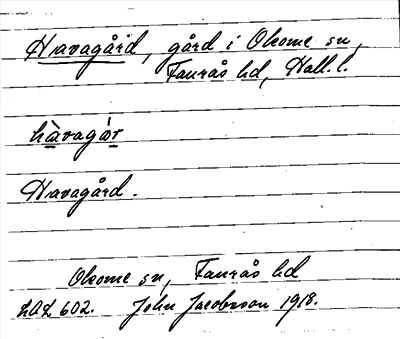 Havagård, gård i Okome sn,
Faurås hd, Hall. l.
hàvagár
Havagård.
Okome sn, Faurås hd
602. John Jacobsson 1918.